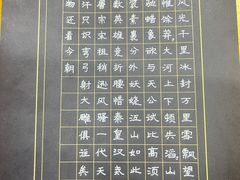 风光千里冰封万里雪飘望
惟馀莽大河上下顿失滔
驰蜡象欲与天公试比高须
裹分外妖娆江山如此
英雄竞折腰惜秦皇汉武
唐宗宋祖稍逊风骚一代天
汗只识弯弓射大雕俱往矣
物还看今朝